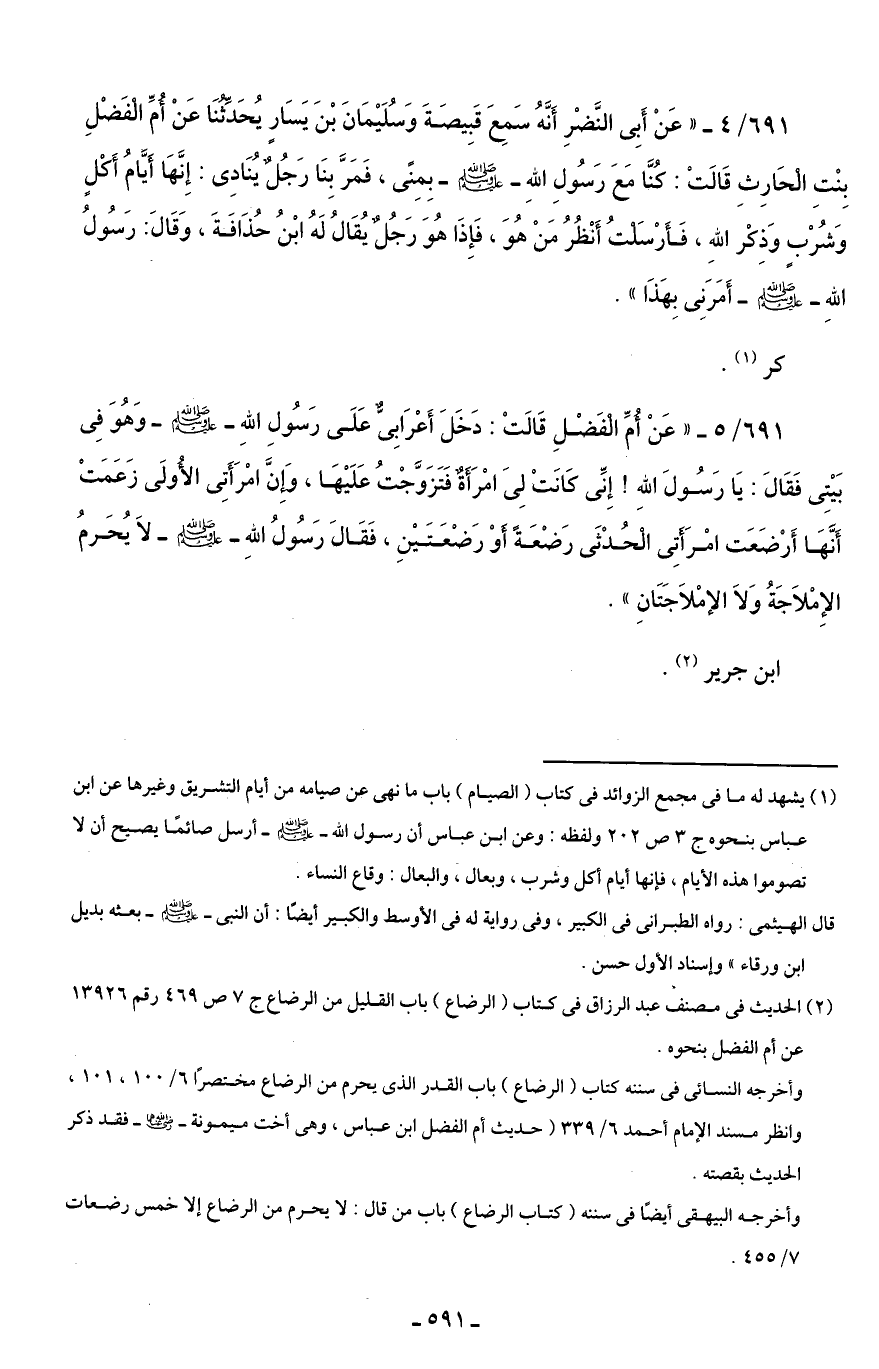 ٦٩١/ ٤ ـ « عَنْ أَبِى النَّضْرِ أَنَّهُ سَمِعَ قَبِيصَةَ وَسُلَيْمَانَ بْنَ يَسَارٍ يُحَدِّثُنَا عَنْ أُمِّ الْفَضْلِ
بِنْتِ الْحَارِثِ قَالَتْ : كُنَّا مَعَ رَسُولِ اللهِ ـ ﷺ ـ بِمِنًى ، فَمَرَّ بِنَا رَجُلٌ يُنَادِى : إِنَّهَا أَيَّامُ أَكْلٍ
وَشُرْبٍ وَذِكْرِ اللهِ ، فَأَرْسَلْتُ أَنْظُرُ مَنْ هُوَ ، فَإِذَا هُوَ رَجُلٌ يُقَالُ لَهُ ابْنُ حُذَافَةَ ، وَقَالَ: رَسُولُ
اللهِ ـ ﷺ ـ أَمَرَنِى بِهَذَا » .
كر (١) .
٦٩١/ ٥ ـ « عَنْ أُمِّ الْفَضْلِ قَالَتْ : دَخَلَ أَعْرَابِىٌّ عَلَى رَسُولِ اللهِ ـ ﷺ ـ وَهُوَ فِى
بَيْتِى فَقَالَ : يَا رَسُولَ اللهِ ! إِنِّى كَانَتْ لِىَ امْرَأَةٌ فَتَزَوَّجْتُ عَلَيْهَا ، وَإِنَّ امْرَأَتِى الأُولَى زَعَمَتْ
أَنَّهَا أَرْضَعَتِ امْرَأَتِى الْحُدْثَى رَضْعَةً أَوْ رَضْعَتَيْنِ ، فَقَالَ رَسُولُ اللهِ ـ ﷺ ـ لاَ يُحَرِمُ
الإِمْلاَجَةُ وَلاَ الإِمْلاَجَتَانِ » .
ابن جرير (٢) .
(١) يشهد له ما فى مجمع الزوائد فى كتاب ( الصيام ) باب ما نهى عن صيامه من أيام التشريق وغيرها عن ابن
عباس بنحوه ج ٣ ص ٢٠٢ ولفظه : وعن ابن عباس أن رسول الله ـ ﷺ ـ أرسل صائمًا يصيح أن لا
تصوموا هذه الأيام ، فإنها أيام أكل وشرب ، وبعال ، والبعال : وقاع النساء .
قال الهيثمى : رواه الطبرانى فى الكبير ، وفى رواية له فى الأوسط والكبير أيضًا : أن النبى ـ ﷺ ـ بعثه بديل
ابن ورقاء » وإسناد الأول حسن .
(٢) الحديث فى مصنف عبد الرزاق فى كتاب ( الرضاع ) باب القليل من الرضاع ج ٧ ص ٤٦٩ رقم ١٣٩٢٦
عن أم الفضل بنحوه .
وأخرجه النسائى فى سننه كتاب ( الرضاع ) باب القدر الذى يحرم من الرضاع مختصرًا ٦/ ١٠٠ ، ١٠١ ،
وانظر مسند الإمام أحمد ٦/ ٣٣٩ ( حديث أم الفضل ابن عباس ، وهى أخت ميمونة ـ رضي الله عنها ـ فقد ذكر
الحديث بقصته .
وأخرجه البيهقى أيضًا فى سننه ( كتاب الرضاع ) باب من قال : لا يحرم من الرضاع إلا خمس رضعات
٧/ ٤٥٥ .
ـ ٥٩١ ـ